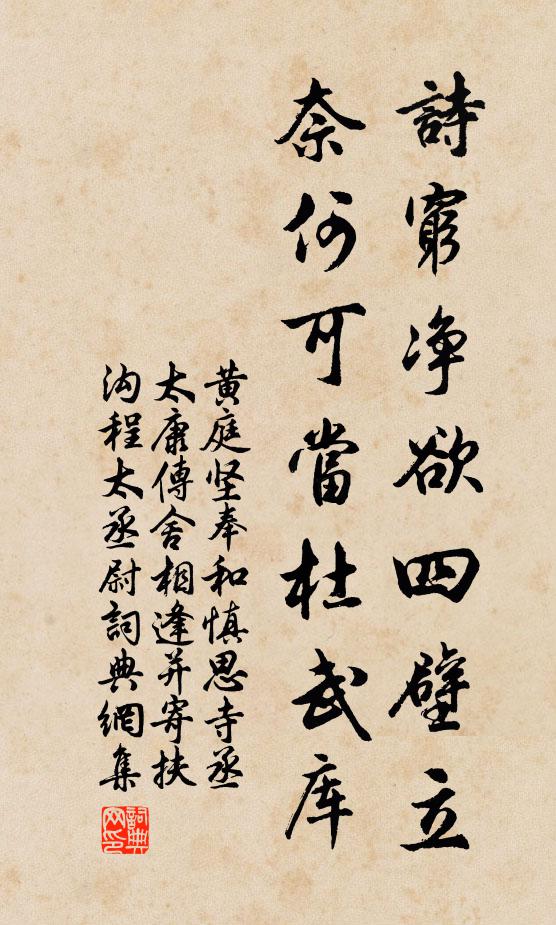 詩窮净欲四壁立
奈何可當杜武库
黄庭坚奉和慎思寺丞
太康傳舍相逢并寄扶
沟程太丞尉詞典網集
詞典
网印